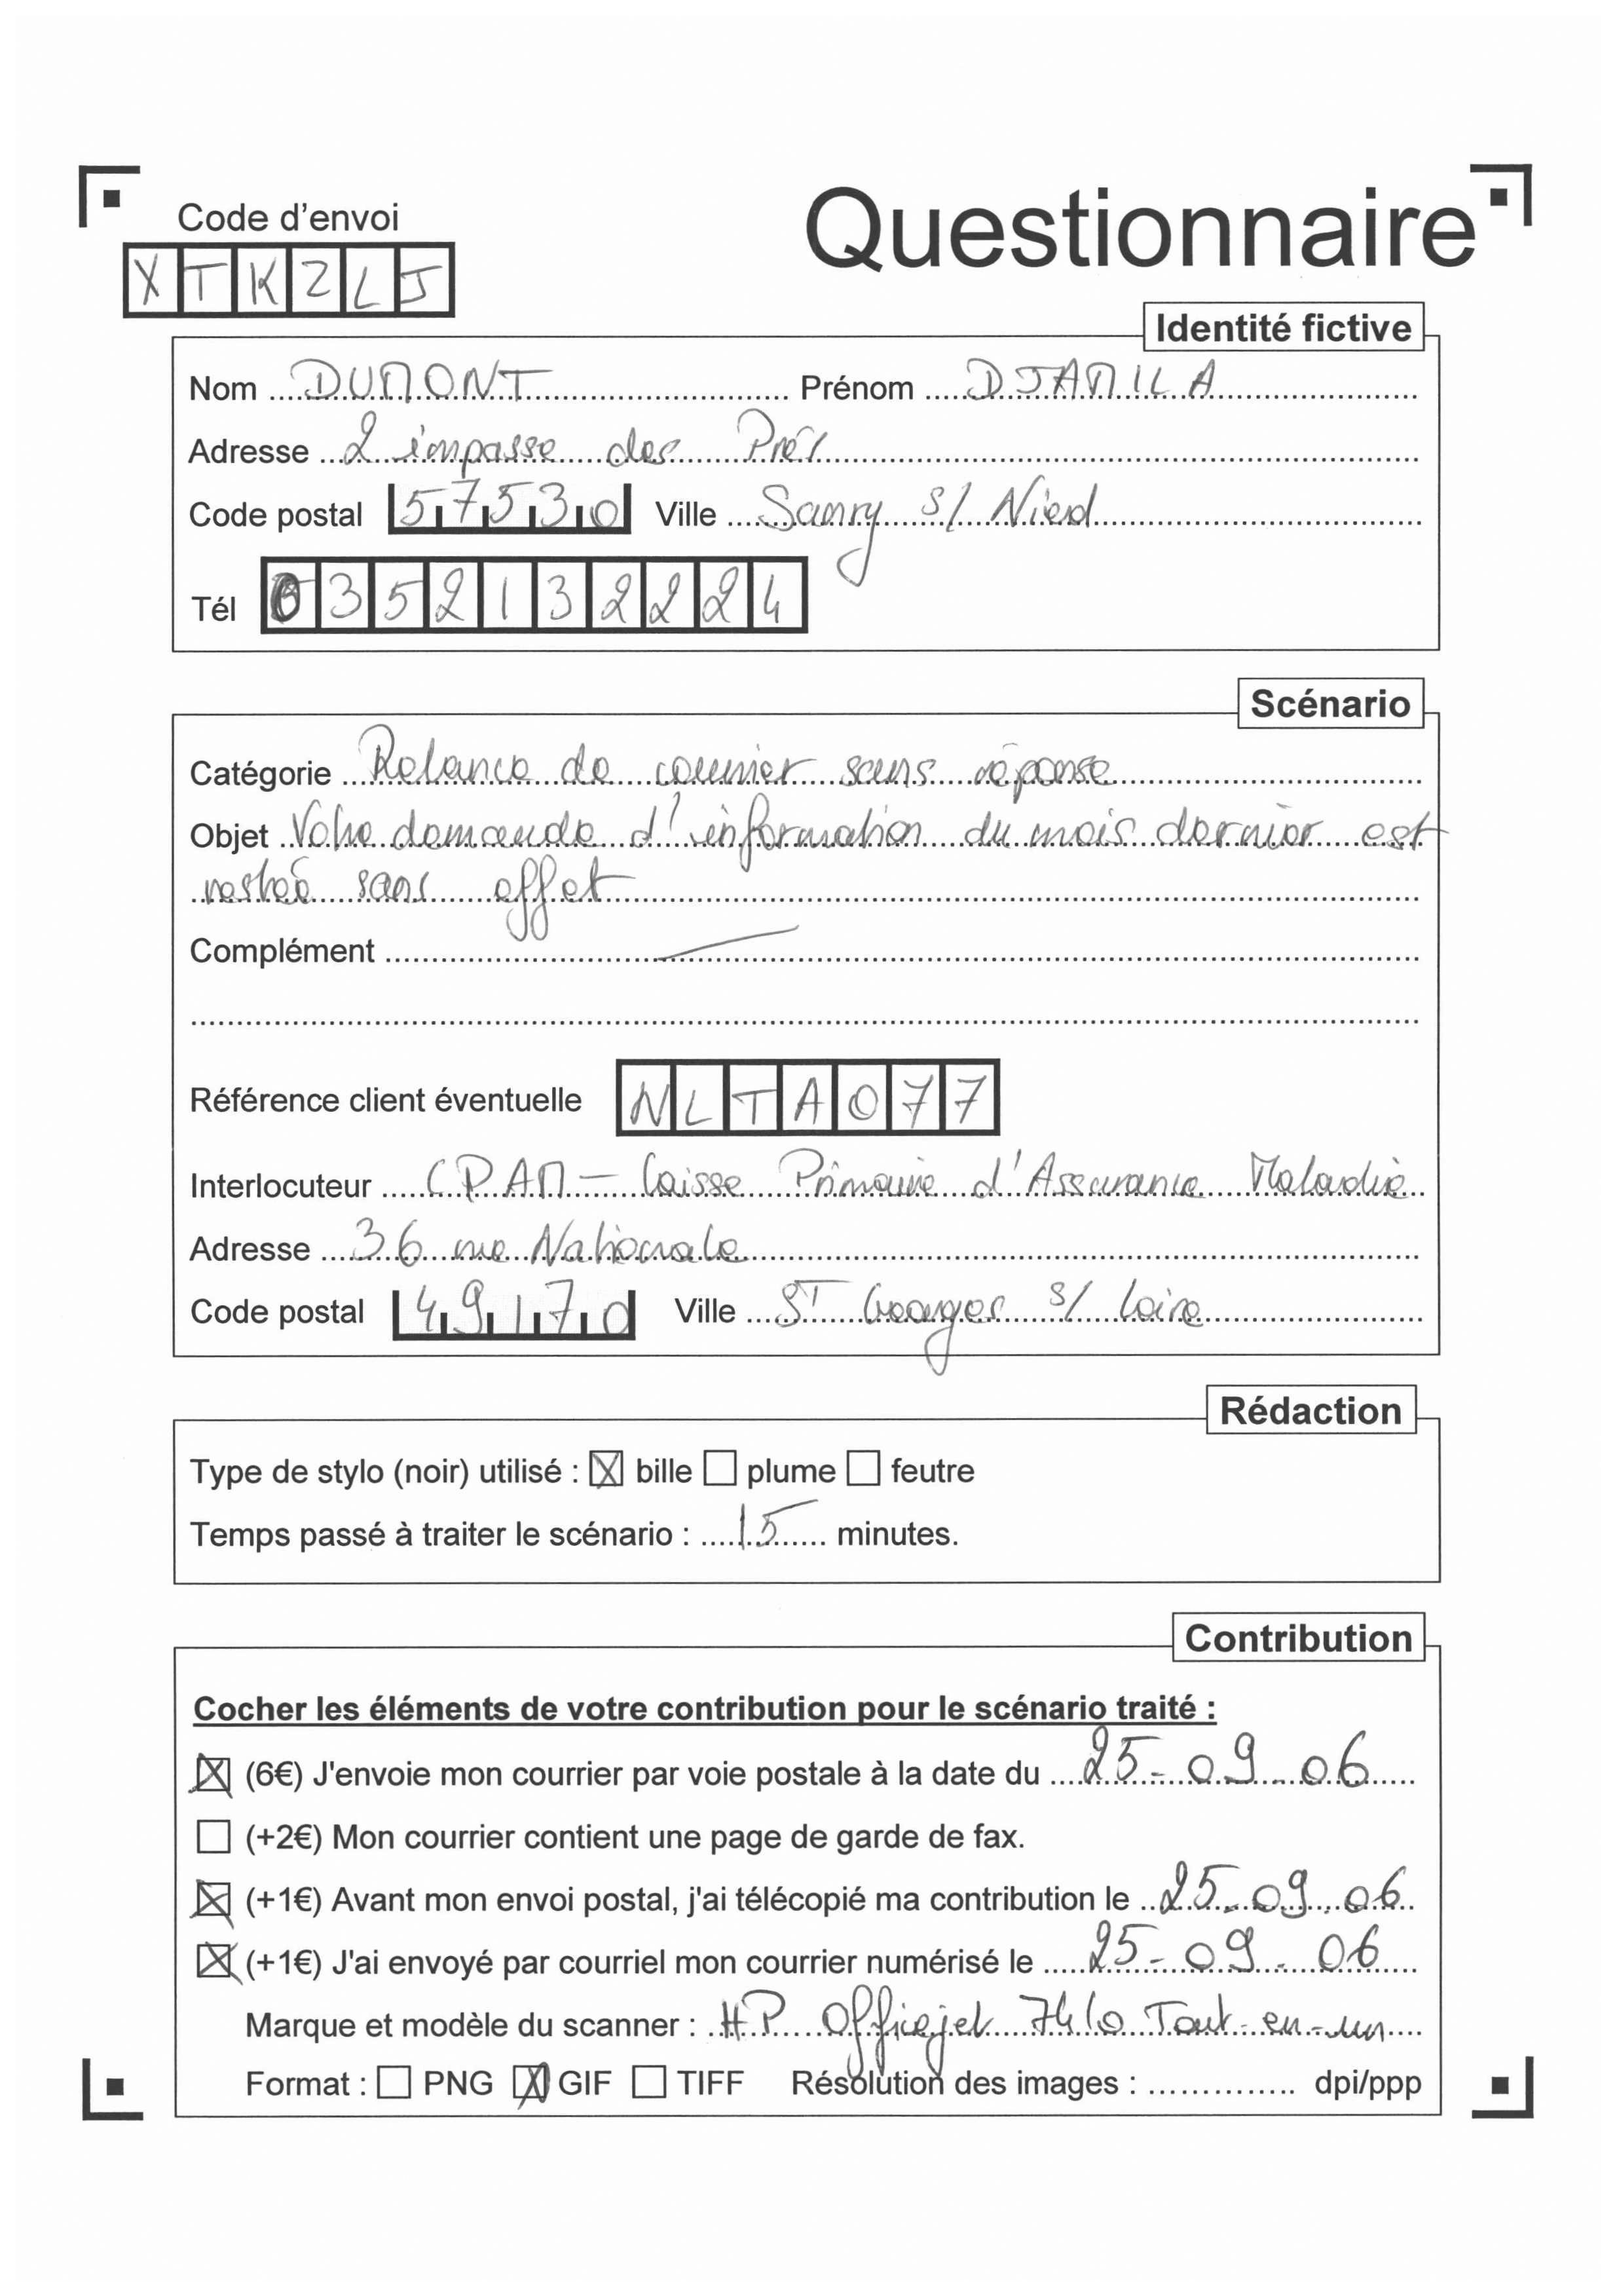 Code d'envoi
Questionnaire
XTKZLJ
Identité fictive
Nom DUMONT Prénom DJAMILA
Adresse 2 impasse des Prés
Code postal 57530 Ville Sanry s/ Nied
Tél 0352132224
Scénario
Catégorie Relance de courrier sans réponse
Objet Votre demande d'information du mois dernier est
restée sans effet
Complément
Référence client éventuelle NLTA077
Interlocuteur CPAM - Caisse Primaire d'Assurance Maladie
Adresse 36 rue Nationale
Code postal 49170 Ville ST Georges s/ Loire
Rédaction
Type de stylo (noir) utilisé : bille plume feutre
Temps passé à traiter le scénario : 15 minutes.
Contribution
Cocher les éléments de votre contribution pour le scénario traité :
(6€) J'envoie mon courrier par voie postale à la date du 25-09-06
(+2€) Mon courrier contient une page de garde de fax.
(+1€) Avant mon envoi postal, j'ai télécopié ma contribution le 25-09-06
(+1€) J'ai envoyé par courriel mon courrier numérisé le 25-09-06
Marque et modèle du scanner : HP Officejet 7410 Tout-en-un
Format : PNG GIF TIFF Résolution des images : dpi/ppp